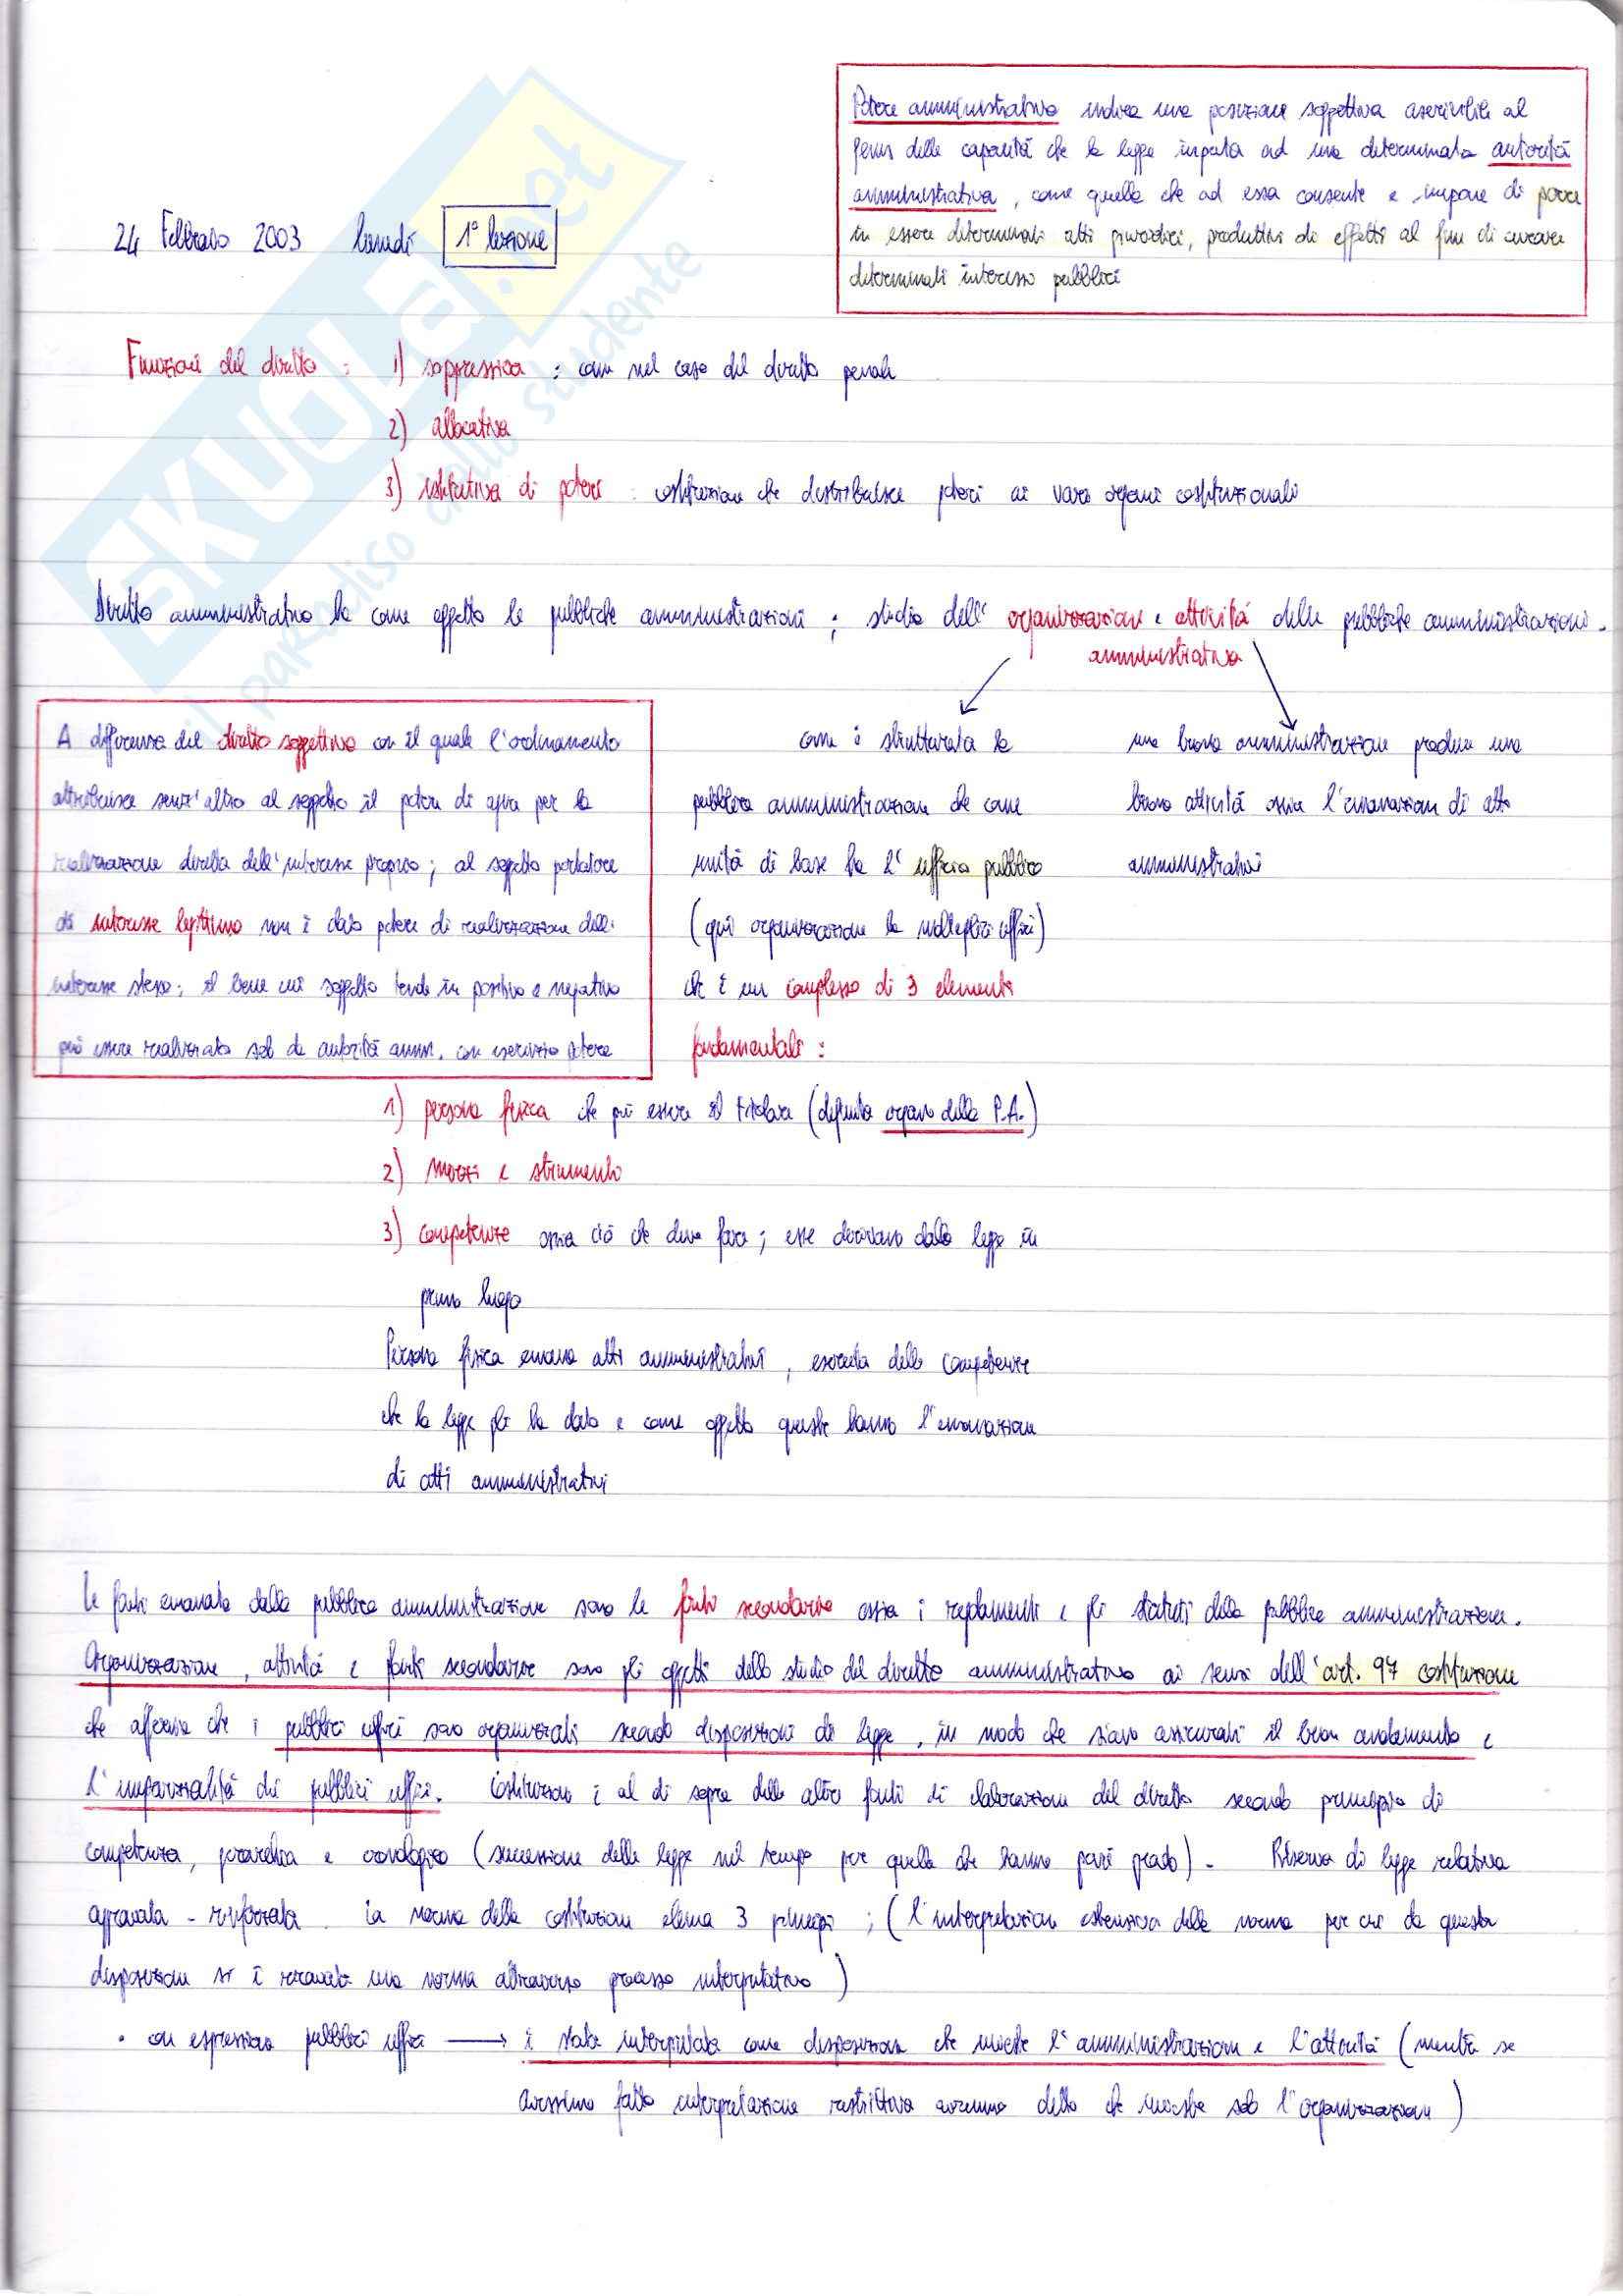 Potere amministrativo indica una posizione soggettiva ascrivibile al
genus delle capacità che la legge imputa ad una determinata autorità
amministrativa, come quella che ad essa consente e impone di porre
in essere determinati atti giuridici, produttivi di effetti al fine di curare
determinati interessi pubblici
24 Febbraio 2003 lunedì 1° lezione
SKUOLA.net
il paradiso dello studente
Funzioni del diritto : 1) soppressiva : come nel caso del diritto penale
2) allocativa
3) istitutiva di poteri : costituzione che distribuisce poteri ai vari organi costituzionali
Diritto amministrativo ha come oggetto le pubbliche amministrazioni ; studio dell' organizzazione e attività delle pubbliche amministrazioni.
amministrativa
A differenza del diritto soggettivo con il quale l'ordinamento
attribuisce senz'altro al soggetto il potere di agire per la
realizzazione diretta dell'interesse proprio; al soggetto portatore
di interesse legittimo non è dato potere di realizzazione dell'
interesse stesso; il bene cui soggetto tende in positivo e negativo
può essere realizzato solo da autorità amm. con esercizio potere
come è strutturata la
pubblica amministrazione che come
unità di base ha l' ufficio pubblico
(qui organizzazione ha molteplici uffici)
che è un complesso di 3 elementi
fondamentali :
una buona amministrazione produce una
buona attività ossia l'emanazione di atti
amministrativi
1) persona fisica che può essere il titolare (definito organo della P.A.)
2) mezzi e strumento
3) competenze ossia ciò che deve fare ; esse derivano dalla legge in
primo luogo
Persona fisica emana atti amministrativi, esercita delle competenze
che la legge gli ha dato e come oggetto queste hanno l'emanazione
di atti amministrativi
Le fonti emanate dalla pubblica amministrazione sono le fonti secondarie ossia i regolamenti e gli statuti della pubblica amministrazione.
Organizzazione, attività e fonti secondarie sono gli oggetti dello studio del diritto amministrativo ai sensi dell'art. 97 costituzione
che afferma che i pubblici uffici sono organizzati secondo disposizioni di legge, in modo che siano assicurati il buon andamento e
l'imparzialità dei pubblici uffici. Costituzione è al di sopra delle altre fonti di elaborazione del diritto secondo principio di
competenza, gerarchia e cronologico (successione delle leggi nel tempo per quelle che hanno pari grado). Riserva di legge relativa
aggravata - rinforzata. La norma della costituzione elenca 3 principi ; (l'interpretazione estensiva della norma per cui da questa
disposizione si è ricavata una norma attraverso processo interpretativo)
• con espressione pubblici uffici → è stata interpretata come disposizione che investe l'amministrazione e l'attività (mentre se
avessimo fatto interpretazione restrittiva avremmo detto che investe solo l'organizzazione)